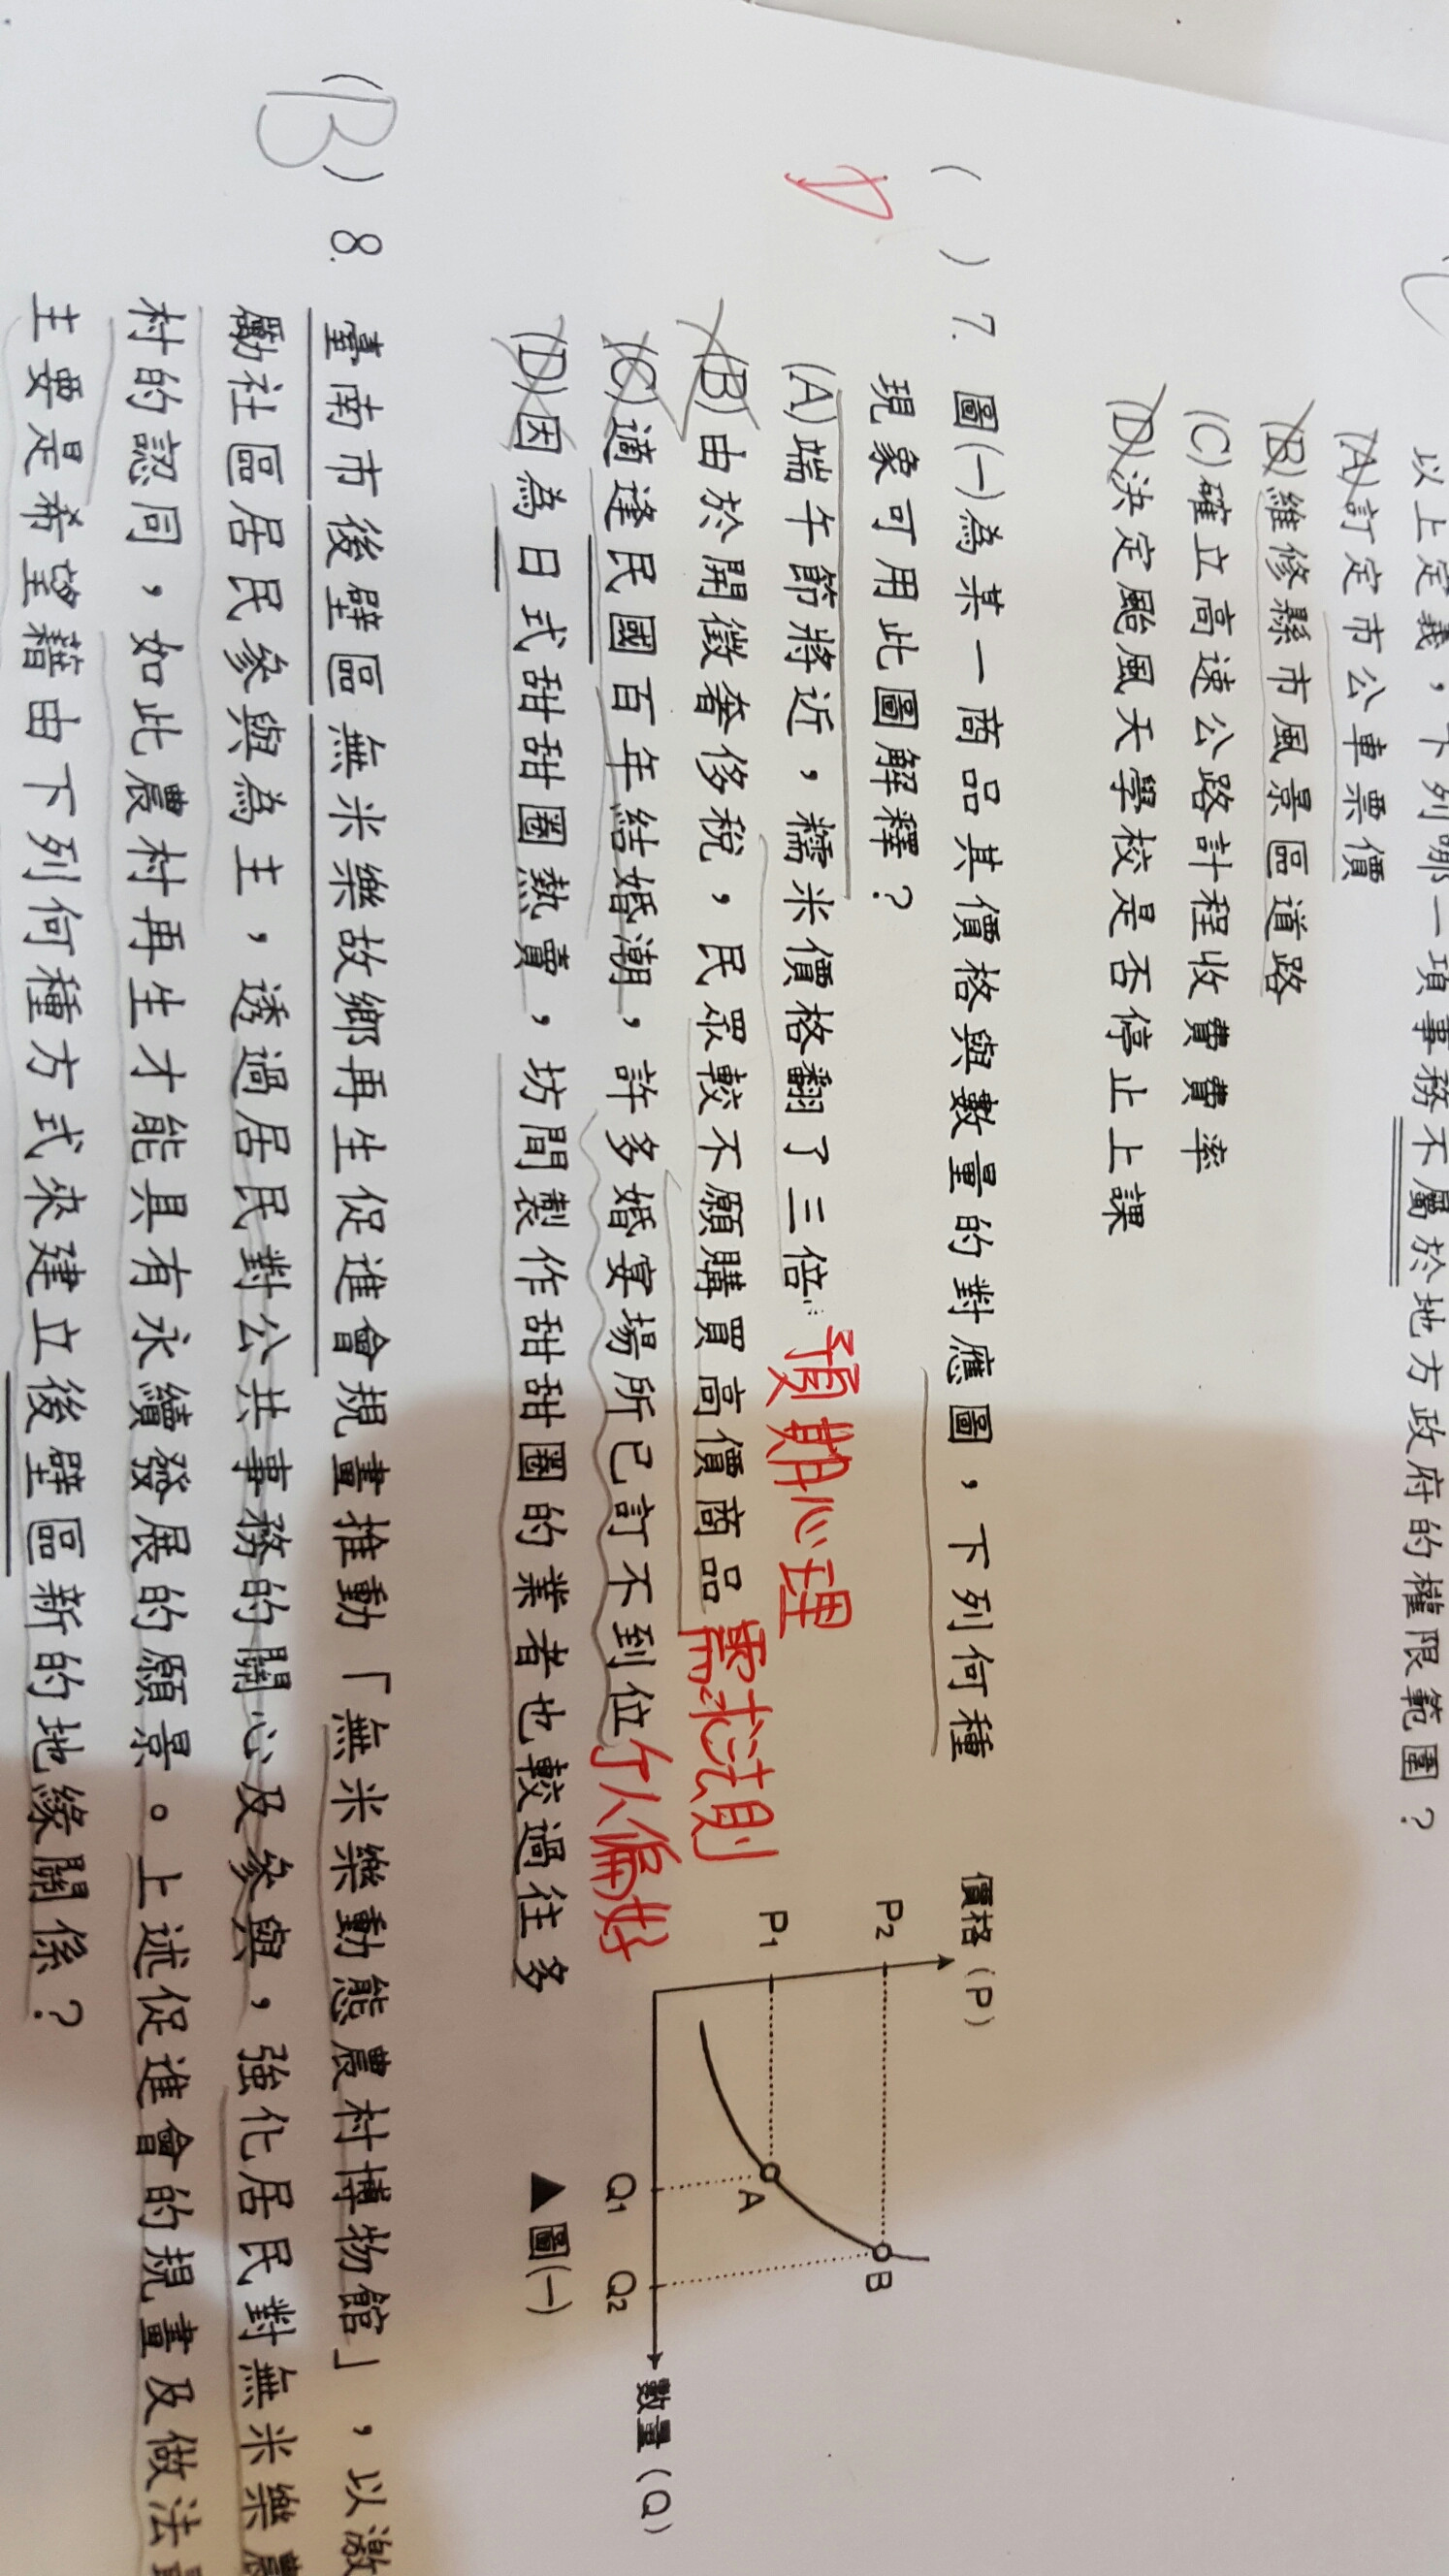 以上定義，下列哪一項事務不屬於地方政府的權限範圍？
(A)訂定市公車票價
(B)維修縣市風景區道路
(C)確立高速公路計程收費費率
(D)決定颱風天學校是否停止上課
( )7. 圖(一)為某一商品其價格與數量的對應圖，下列何種
現象可用此圖解釋？
D
(A)端午節將近，糯米價格翻了三倍 預期心理
(B)由於開徵奢侈稅，民眾較不願購買高價商品 需求法則
(C)適逢民國百年結婚潮，許多婚宴場所已訂不到位 個人偏好
(D)因為日式甜甜圈熱賣，坊間製作甜甜圈的業者也較過往多
價格(P)
P2
P1
A
B
Q1
Q2
數量(Q)
▲圖(一)
(B)8. 臺南市後壁區無米樂故鄉再生促進會規畫推動「無米樂動態農村博物館」，以激
勵社區居民參與為主，透過居民對公共事務的關心及參與，強化居民對無米樂農
村的認同，如此農村再生才能具有永續發展的願景。上述促進會的規畫及做法
主要是希望藉由下列何種方式來建立後壁區新的地緣關係？